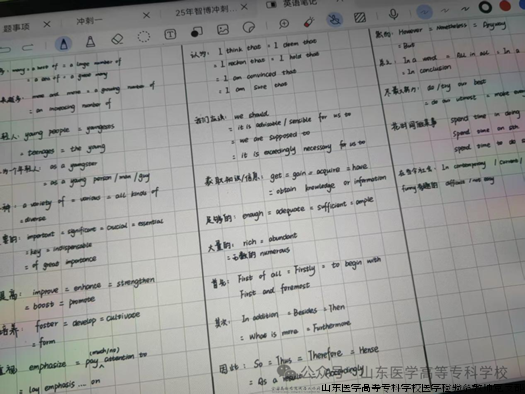 冲刺一
25年智博冲刺
英语笔记
= a large number of
= a great many
more and more = a growing number of
= an increasing number of
young people = youngsters
= teenagers = the young
as a youngster
as a young person / man / guy
a variety of = various = all kinds of
= diverse
important = significant = crucial = essential
= key = indispensable
= of great importance
提高: improve = enhance = strengthen
= boost = promote
培养: foster = develop = cultivate
= form
emphasize = pay (much/no) attention to
= lay emphasis ... on
认为: I think that = I deem that
= I reckon that = I hold that
= I am convinced that
= I am sure that
我们应该: we should
= it is advisable / sensible for us to
= we are supposed to
= it is exceedingly necessary for us to
获取知识/信息: get = gain = acquire = have
= obtain knowledge or information
足够的: enough = adequate = sufficient = ample
大量的: rich = abundant
= 无数的 numerous
首先: First of all = Firstly = to begin with
First and foremost
其次: In addition = Besides = Then
= What is more = Furthermore
因此: So = Thus = Therefore = Hence
= As a Accordingly
However = Nonetheless =
= But
In a word = All in all = In
= In conclusion
do / try our best
= do our utmost = make
spend time in doing
spend time on sth
spend time to do
在当今社会: In contemporary / current
公众号·山东医学高等专科学校
山东医学高等专科学校医学检验